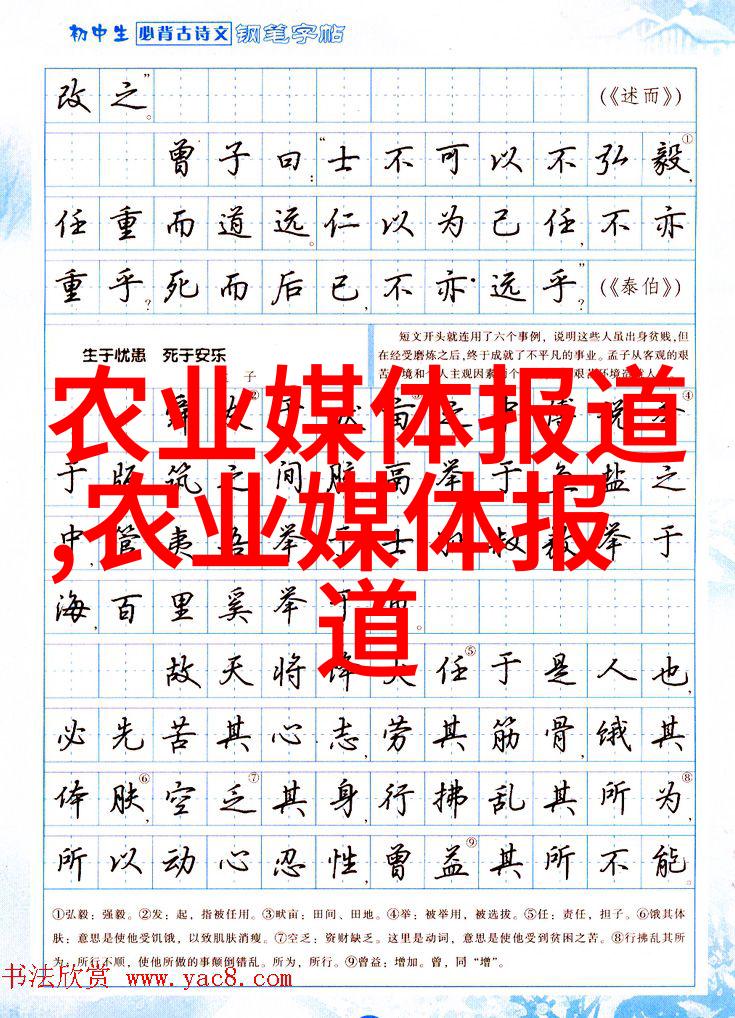 初中生 必背古诗文 钢笔字帖
改之。” (《述而》)
曾子曰:“士不可以不弘毅①,
任重而道远。仁以为己任,不亦
重乎?死而后已,不亦远乎?” (《泰伯》)
生于忧患 死于安乐
子
短文开头就连用了六个事例,说明这些人虽出身贫贱,但
在经受磨炼之后,终于成就了不平凡的事业。孟子从客观的艰
农业媒体报道
,农业媒体报
道
于版筑之间 胶鬲举于 盐之
中,管夷吾举于士 举于
海,百里奚举于
故天将降大任⑤于是人也,
必先苦其心志,劳其筋骨,饿其
体肤⑥,空乏⑦其身,行拂乱其所为⑧,
所以动心忍性,曾益⑨其所不能
①弘毅:强毅。②发:起,指被任用。③畎亩:田间、田地。④举:被举用,被选拔。⑤任:责任,担子。⑥饿其体
肤:意思是使他受饥饿,以致肌肤消瘦。⑦空乏:资财缺乏。这里是动词,意思是使他受到贫困之苦。⑧行拂乱其所
为:所行不顺,使他所做的事颠倒错乱。所为,所行。⑨曾益:增加。曾,同“增”。
书法欣赏 www.yac8.com